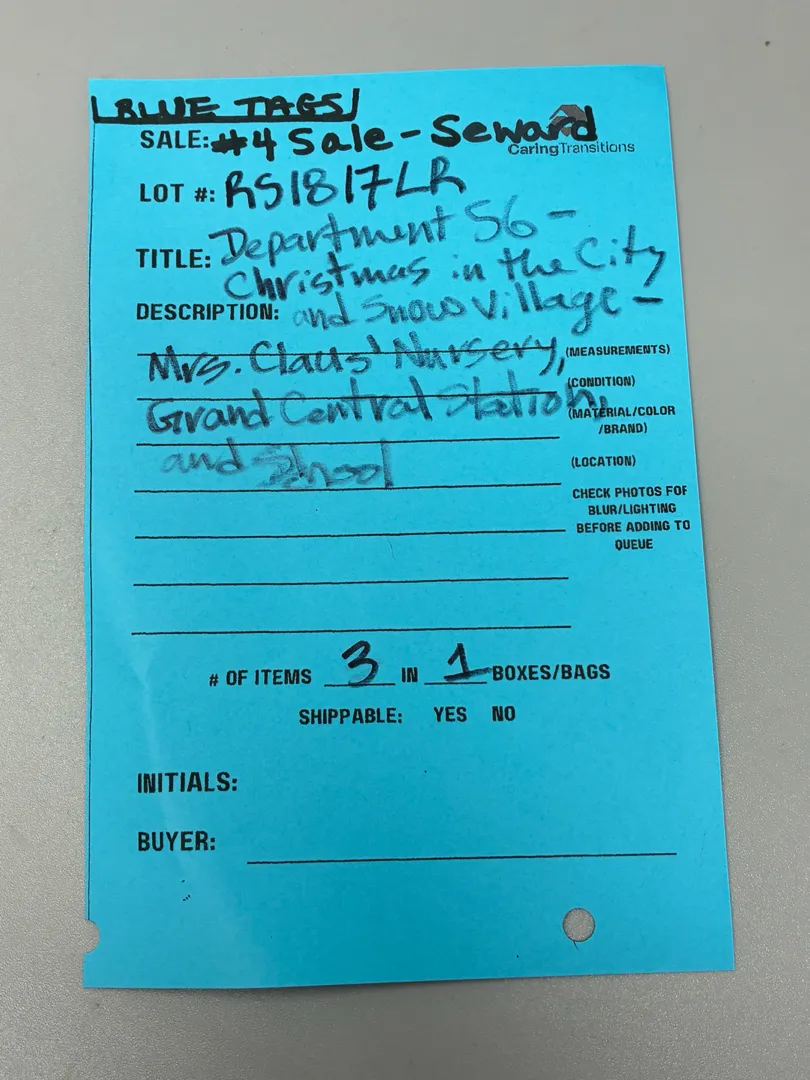 BLUE TAGS
SALE: #4 Sale - Seward
CaringTransitions
LOT #: RS1817LR
TITLE: Department 56 -
Christmas in the City
DESCRIPTION: and Snow Village -
Mrs. Claus' Nursery, (MEASUREMENTS)
(CONDITION)
Grand Central Station, (MATERIAL/COLOR
/BRAND)
and School (LOCATION)
CHECK PHOTOS FOR
BLUR/LIGHTING
BEFORE ADDING TO
QUEUE
# OF ITEMS 3 IN 1 BOXES/BAGS
SHIPPABLE: YES NO
INITIALS:
BUYER: